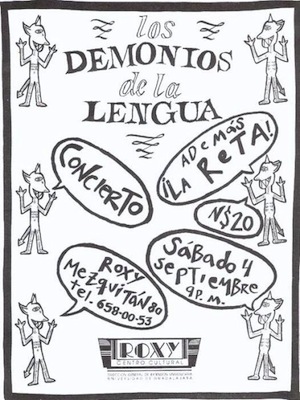 los
DEMONIOS
de la
LENGUA
CONCIERTO
ADEMÁS
¡LA ReTA!
N$20
ROXY
MEZQUITÁN 80
tel. 658-00-53
SÁBADO 4
SEPTIEMBRE
9 P.M.
ROXY
CENTRO CULTURAL
UNIVERSIDAD DE GUADALAJARA